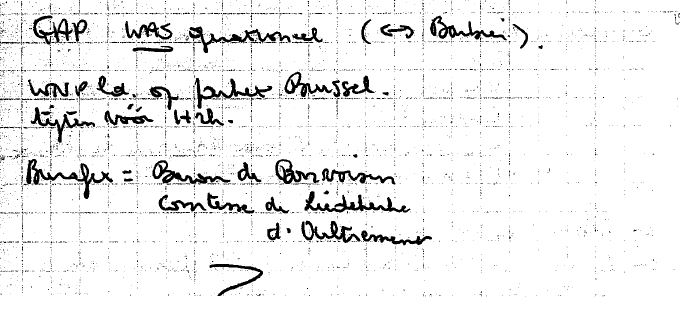 GAP WAS operationeel (<-> Barbier).
WNP ld. op parket Brussel.
tijden vóór H2h.
Benafex = Baron de Bonvoisin
Comtesse de Liedekerke
d'Oultremont